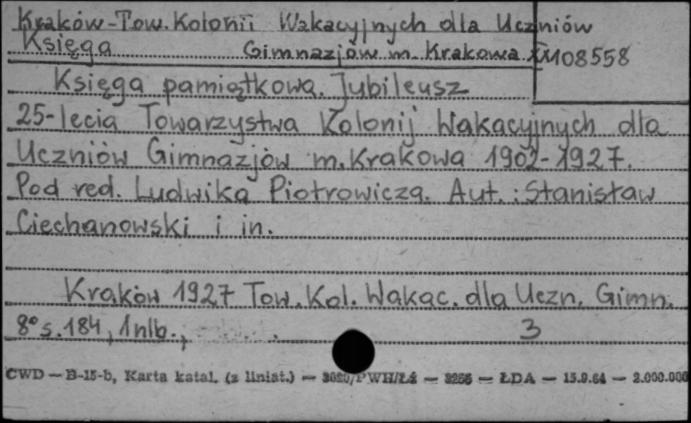 Kraków-Tow. Kolonii Wakacyjnych dla Uczniów
Księga Gimnazjów m. Krakowa
M08558
Księga pamiątkowa. Jubileusz
25-lecia Towarzystwa Kolonij Wakacyjnych dla
Uczniów Gimnazjów m. Krakowa 1902-1927.
Pod red. Ludwika Piotrowicza. Aut.: Stanisław
Ciechanowski i in.
Kraków 1927 Tow. Kol. Wakac. dla Uczn. Gimn.
8° s. 184, 1 nlb., 3
CWD — B-15-b, Karta katal. (z liniat.) — PWH/Łż — — ŁDA — 15.9.64 — 2.000.000